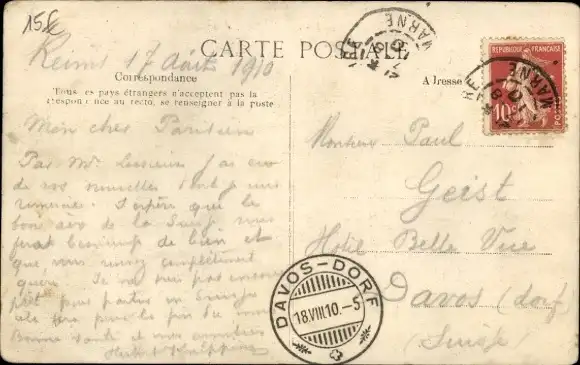 15 f
Reims 17 août 1910
CARTE POSTALE
MARNE
Correspondance
Adresse
Tous les pays étrangers n'acceptent pas la
correspondance au recto, se renseigner à la poste
REPUBLIQUE FRANÇAISE
10
POSTES
MARNE
Mon cher Parisien
Par Mr j'ai eu
de vos nouvelles dont je vous
remercie. J'espère que le
bon air de la Suisse vous
fera beaucoup de bien et
que vous serez complètement
guéri. Je ne suis pas encore
prêt pour partir en
cela sera pour la fin du mois
Bonne santé et mes amitiés
Monsieur Paul
Geist
Hôtel Belle Vue
Davos (dorf)
(Suisse)
DAVOS-DORF
18.VIII.10.-5